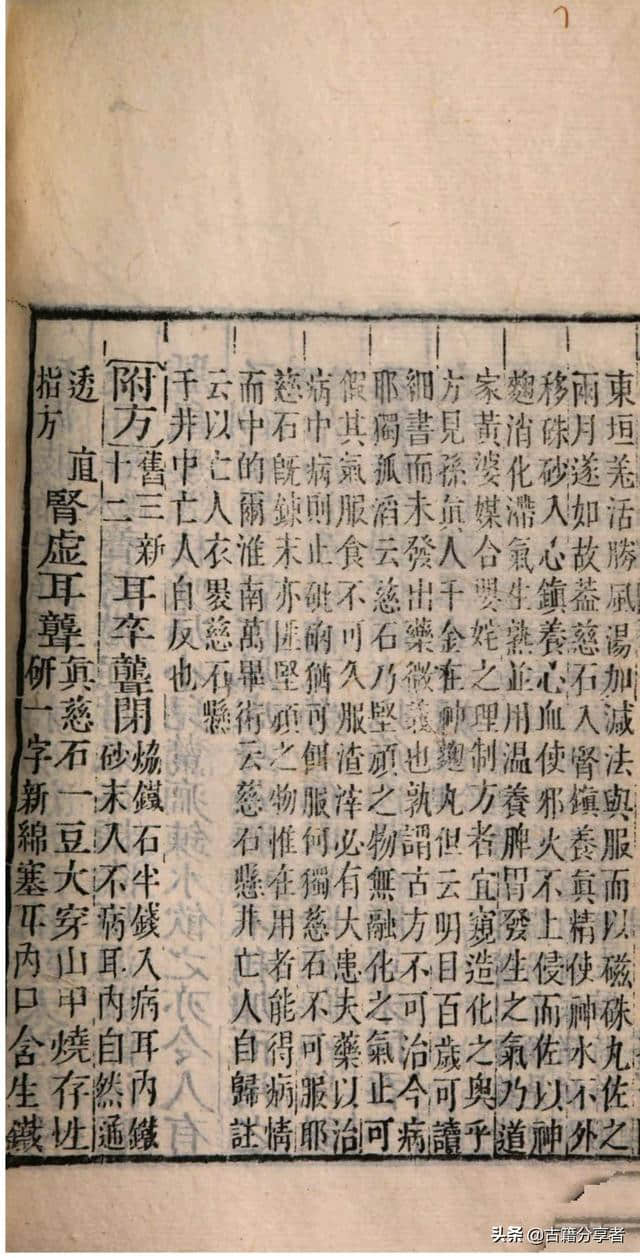 東垣羌活勝風湯加減法與服而以磁硃丸佐之
兩月遂如故葢慈石入腎鎮養真精使神水不外
移硃砂入心鎮養心血使邪火不上侵而佐以神
麴消化滯氣生熟並用温養脾胃發生之氣乃道
家黃婆媒合嬰姹之理制方者宜窺造化之奥乎
方見孫真人千金在神麴丸但云明目百歲可讀
細書而未發出藥微義也孰謂古方不可治今病
耶獨孤滔云慈石乃堅頑之物無融化之氣止可
假其氣服食不可久服渣滓必有大患夫藥以治
病中病則止砒硇猶可餌服何獨慈石不可服耶
慈石既鍊末亦匪堅頑之物惟在用者能得病情
而中的爾淮南萬畢術云慈石懸井亡人自歸註
云以亡人衣裂慈石懸
于井中亡人自反也
附方
舊三新
十二
耳卒聾閉
㷎鐵石半錢入病耳內鐵
砂末入不病耳內自然通
透
直
指方
腎虛耳聾
真慈石一豆大穿山甲燒存性
研一字新綿塞耳內口含生鐵
头条 @古籍分享者